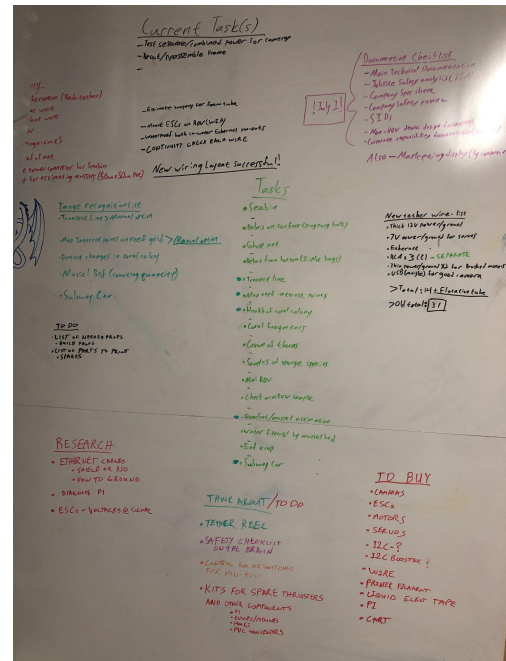 Current Task(s)
- Test separate/combined power for camera
- Recut/reassemble frame
-
- Move ESCs on ROV (WET)
- CONTINUITY CHECK BACK WIRE
New wiring layout successful!
! July 1 !
Documentation Checklist
- Main Technical Documentation
- Jobsite Safety Analysis (JSA)
- Company Spec sheet
- Company Safety review
- SIDs
- Non-ROV device design document
- Corporate responsibility documentation
Also - Marketing display
Image recognition list
- Transect line > Manual option
- Map interest points on reef grid > Manual option
- Detect changes in coral colony
- Mussel Bed (counting quantity)
- Subway Car
TO DO
- LIST OF NEEDED PROPS
- BUILD PROPS
- LIST OF PARTS TO PRINT
- SPARES
Tasks
• Seabin
• Debris on surface (ping pong balls)
• Ghost net
• Debris from bottom (2 ziploc bags)
• Transect line
• Map reef interest points
• Health of coral colony
• Coral fragments
• Crown of thorns
• Samples of sponge species
• Mini ROV
• Check sediment sample
• mussel estimation
• Water filtered by mussel bed
• Eel trap
• Subway Car
New tether wire list
• Thick 12V power/ground
• 7V power/ground for servos
• Ethernet
• RCA x 3 (?) - SEPARATE
• Thin power/ground x2 for brushed motors
• USB (maybe) for good camera
> Total: 14 + Floatation tube
> Old total: 31
RESEARCH
• ETHERNET CABLES
• SHIELD OR NO
• HOW TO GROUND
• DIAGNOSE PI
• ESCs - VOLTAGES @ SIGNAL
THINK ABOUT/TO DO
• TETHER REEL
• SAFETY CHECKLIST
ON THE BRAIN
• CONTROL BOX OR SWITCHES
FOR MINI-ROV
• KITS FOR SPARE THRUSTERS
AND OTHER COMPONENTS
• PI
• HOOKS
• PVC CONNECTORS
TO BUY
• CAMERAS
• ESCs
• MOTORS
• SERVOS
• I2C - ?
• I2C BOOSTER ?
• WIRE
• PRINTER FILAMENT
• LIQUID ELECT TAPE
• PI
• CART